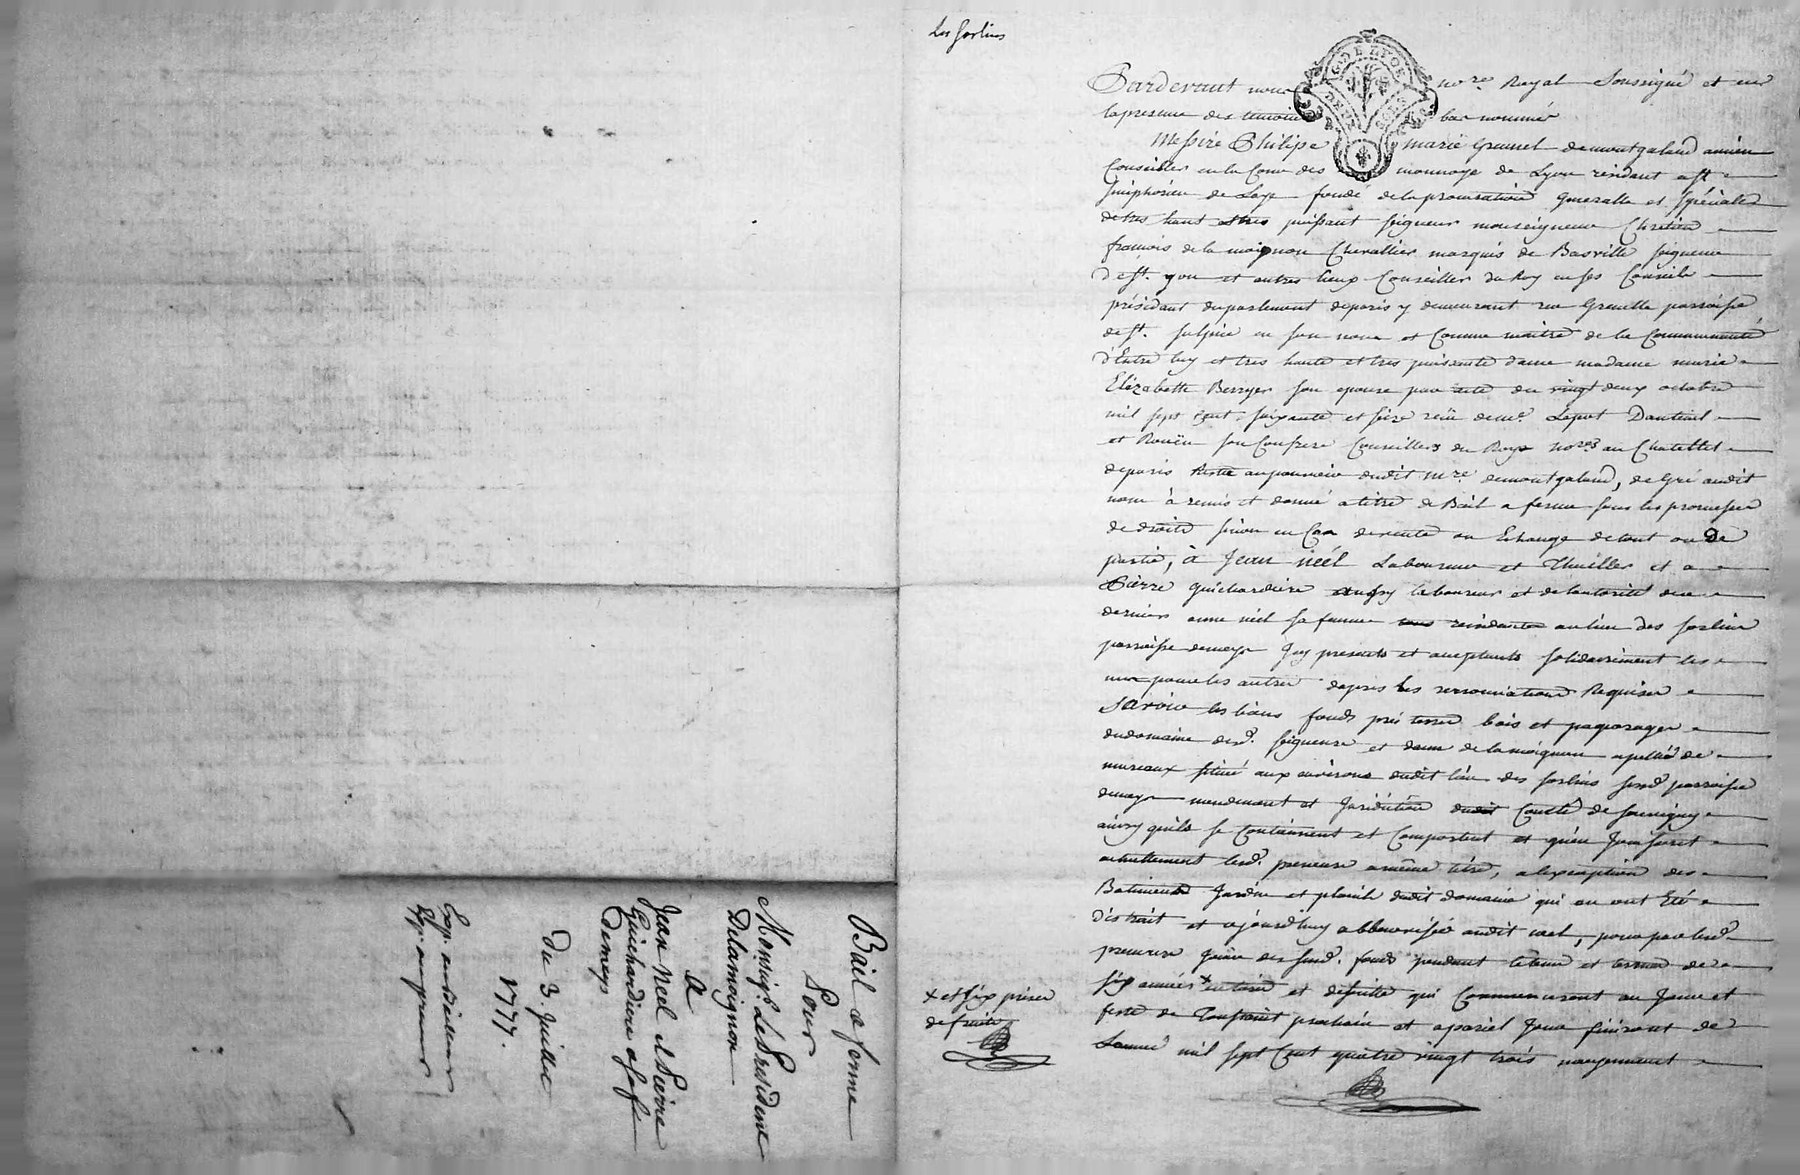 Bail a ferme
Pour
Monsigr. Le President
Delamoignon
a
Jean Neel et Pierre
Guichardiere et sa fe
demeys
Du 3. Juillet
1777.
Exp. au Bailleur
Exp. au preneur
Les forlins
Pardevant nous no.re Royal Soussigné et en
la presence des temoins bas nommés
Messire Philipe marie Grumel demontgaland ancien
Conseiller en la Cour des monnoye de Lyon residant a St.
simphorien de Laye fondé de la procuration generalle et speciale
de tres haut et tres puissant seigneur monseigneur Chretien
françois de la moignon Chevallier marquis de Basville seigneur
de St. yon et autres lieux Conseiller du Roy en ses Conseils
président du parlement de paris y demeurant rue Grenelle parroisse
de St. sulpice en son nom et Comme maitre de la Communauté
d'Entre luy et tres haute et tres puissante dame madame marie
Elizabeth Berryer son epouse par acte du vingt deux octobre
mil sept cent soixante et seize reçu de me. Lepot Dauteuil
et Rouën son Confrere Conseillers du Roy no.res au Chatellet
de paris Resté au pouvoir dudit m.re demontgaland, de Gré audit
nom à remis et donné a titre de Bail a ferme sous les promesses
de droits sinon en Cas de vente ou Echange de tout ou de
partie, à Jean néél Laboureur et Thuillier et a
Pierre guichardiere aussy laboureur et de l'autorité de ce
dernier anne néél sa femme residants au lieu des forlins
parroisse demeys Icy presents et acceptants solidairement les
uns pour les autres apres les renonciations Requises
Savoir les biens fonds prés terres bois et paquerages
du domaine desd. seigneur et dame de la moignon apellé de
mureaux situé aux environs dudit lieu des forlins susd. parroisse
demeys mandement et Juridiction Comté de souvigny
ainsy qu'ils se Contiennent et Comportent et qu'en Jouissent
actuellement lesd. preneurs a même titre, a l'exception des
Batiments Jardin et dudit domaine qui en ont Eté
distrait et ajourd'huy abbenevisé audit neel, pour par lesd.
preneurs Jouir des susd. fonds pendant le tems et terme de
six années x entieres et desuite qui Commenceront au Jour et
feste de Toussaint prochain et a pareil Jour finiront de
L'année mil sept Cent quatre vingt trois moyennant
x et six prises
de fruits